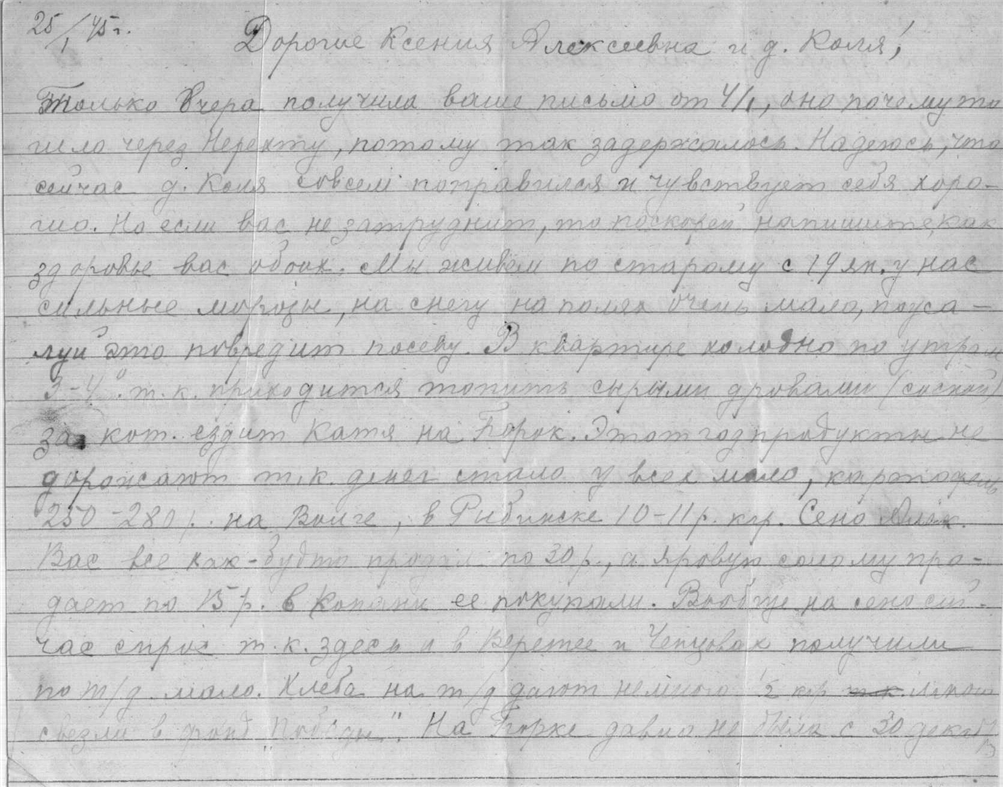 25/I 45 г.
Дорогие Ксения Алексеевна и д. Коля!
Только вчера получила ваше письмо от 4/I, оно почему то
шло через Нерехту, потому так задержалось. Надеюсь, что
сейчас д. Коля совсем поправился и чувствует себя хоро-
шо. Но если вас не затруднит, то поскорей напишите, как
здоровье вас обоих. Мы живем по старому с 19 янв. у нас
сильные морозы, на снегу на полях очень мало, пожа-
луй это повредит посеву. В квартире холодно по утрам
3-4° т.к. приходится топить сырыми дровами (сосной)
за кот. ездит Катя на Борок. Этот год продукты не
дорожают т.к. денег стало у всех мало, картофель
250-280 р. на Волге, в Рибинске 10-11 р. кгр. Сено
Вас все как-будто по 30 р., а яровую солому про-
дает по 15 р. в Копани ее покупали. Вообще на сено сей-
час спрос т.к. здесь и в Веретее и получили
по т/д мало. Хлеба на т/д дают немного ½ кгр
свезли в фонд "Победы". На Горке давно не была с 30 декаб